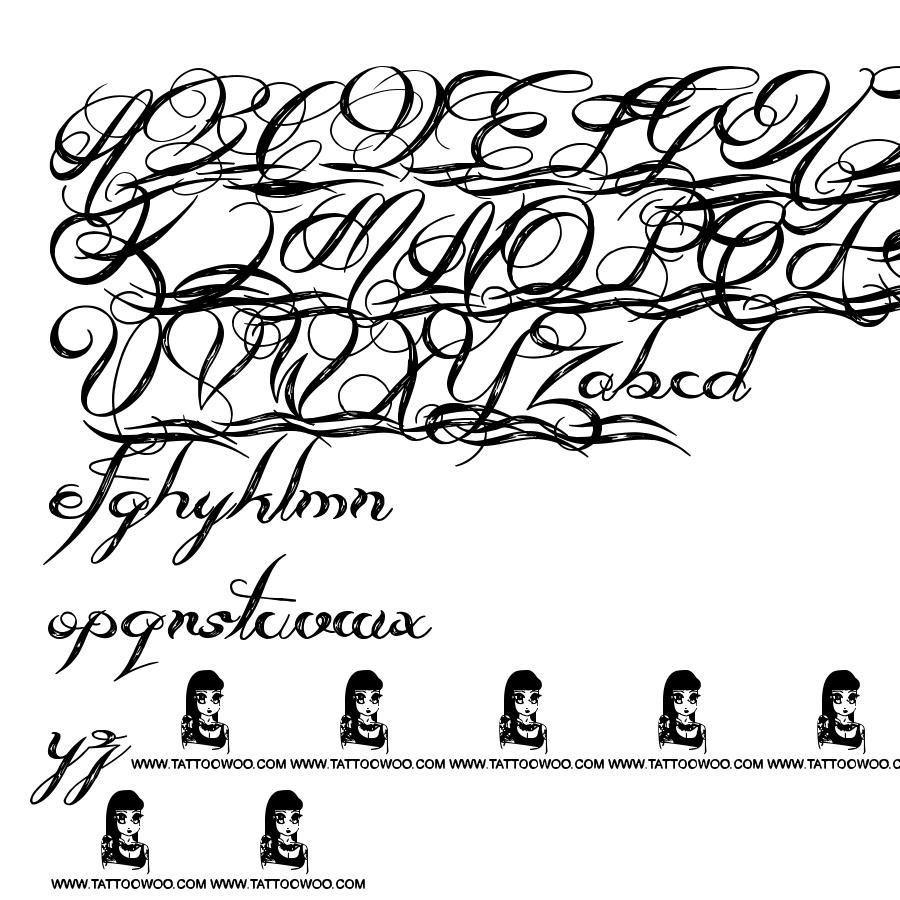 A B C D E F G H
K L M N O P Q T
U V W X Y Z a b c d
e f g h y k l m n
o p q r s t u v w x
y z WWW.TATTOOWOO.COM WWW.TATTOOWOO.COM WWW.TATTOOWOO.COM WWW.TATTOOWOO.COM WWW.TATTOOWOO.C
WWW.TATTOOWOO.COM WWW.TATTOOWOO.COM